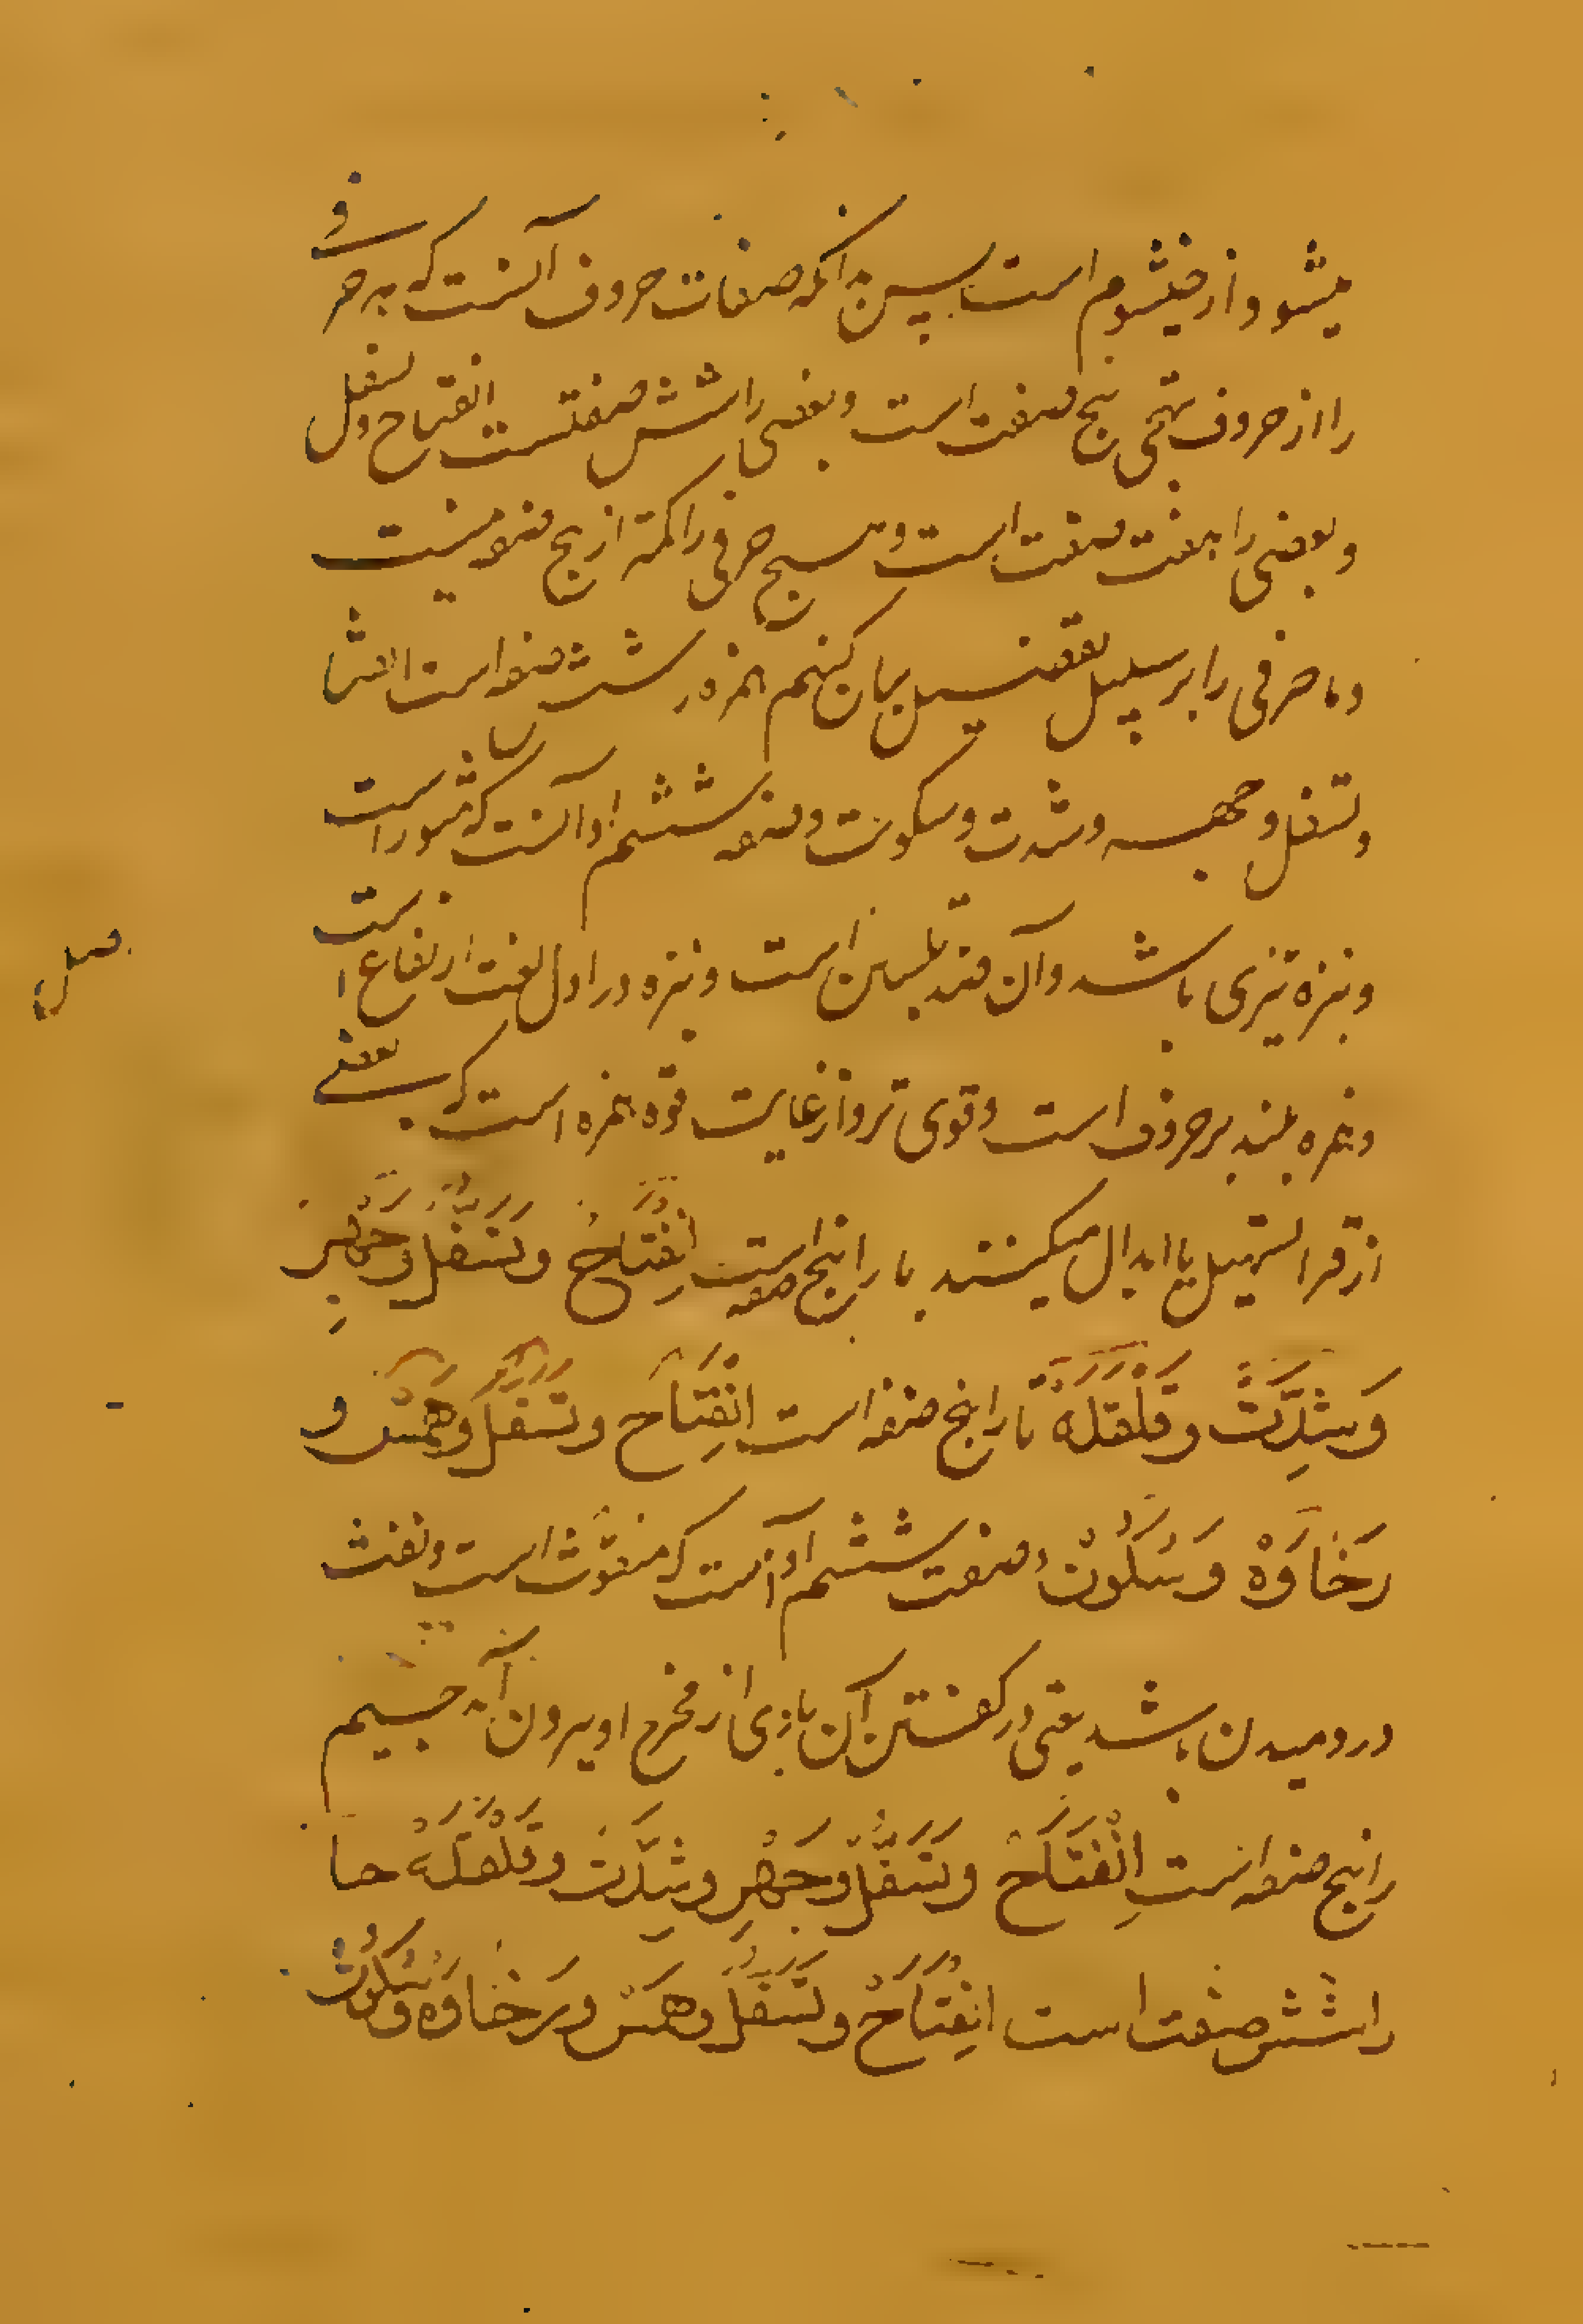 میشود از خیشوم است پس بدانکه صفات حروف آنست که هر حرفی
را از حروف تهجی پنج صفت است و بعضی را شش صفتست انفتاح و تسفل
و بعضی را هفت صفت است و هیچ حرفی را کمتر از پنج صفه نیست
و ما حرفی را بر سبیل تفصیل بیان کنیم همزه را شش صفه است انفتاح
و تسفل و جهر و شدت و سکونت و صفه ششم او آنست که منبور است
و نبره تیزی باشد و آن ضد تلیین است و نبره در اول لغت ارتفاع است
و همزه بلند بر حروف است و قوی تر و از غایت قوه همزه است که بعضی
از قرا تسهیل یا ابدال میکنند با را پنج صفه است اِنْفِتَاحْ وَتَسَفُّلْ وَجَهْرْ
وَشِدَّتْ وَقَلْقَلَهْ تا را پنج صفه است اِنْفِتَاحْ وَتَسَفُّلْ وَهَمْسْ وَ
رَخَاوَهْ وَسُکُونْ و صفت ششم او آنست که منفوث است و نفث
در دمیدن باشد یعنی در گفتن آن بادی از مخرج او بیرون آید جیم
را پنج صفه است اِنْفِتَاحْ وَتَسَفُّلْ وَجَهْرْ وَشِدَّتْ وَقَلْقَلَهْ حا
را شش صفت است اِنْفِتَاحْ وَتَسَفُّلْ وَهَمْسْ وَرَخَاوَهْ وَسُکُوْتْ